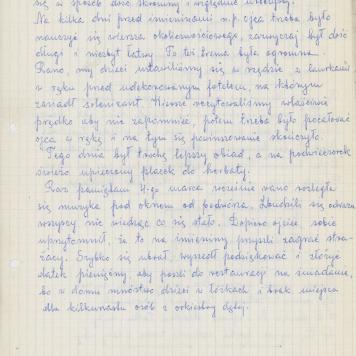 się w sposób dość skromny i względnie uroczysty.
Na kilka dni przed imieninami n.p. ojca trzeba było
nauczyć się wiersza okolicznościowego, zazwyczaj był dość
długi i niezbyt łatwy. To też trema była ogromna.
Rano, my dzieci ustawiliśmy się w rzędzie z laurkami
w ręku przed udekorowanym fotelem, na którym
zasiadł solenizant. Wiersze recytowaliśmy właściwie
prędko aby nie zapomnieć, potem trzeba było pocałować
ojca w rękę i na tym się powinszowanie skończyło.
Tego dnia był trochę lepszy obiad, a na podwieczorek
świeżo upieczony placek do herbaty.
Raz pamiętam 4-go marca wcześnie rano rozległa
się muzyka pod oknem od podwórza. Zbudzili się
wszyscy nie wiedząc co się stało. Dopiero ojciec sobie
uprzytomnił, że to na imieniny przyszli zagrać stra-
żacy. Szybko się ubrał, wyszedł podziękować i złożyć
datek pieniężny, aby poszli do restauracji na śniadanie,
bo w domu mnóstwo dzieci w łóżkach i brak miejsca
dla kilkunastu osób z orkiestry dętej.